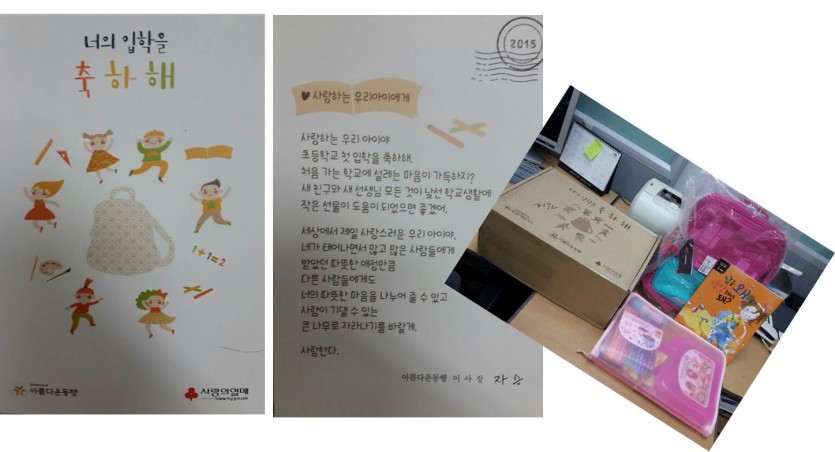 너의 입학을
축하해
1+1=2
아름다운동행
사랑의열매
2015
♥ 사랑하는 우리아이에게
사랑하는 우리 아이야
초등학교 첫 입학을 축하해.
처음 가는 학교에 설레는 마음이 가득하지?
새 친구와 새 선생님 모든 것이 낯선 학교생활에
작은 선물이 도움이 되었으면 좋겠어.
세상에서 제일 사랑스러운 우리 아이야.
네가 태어나면서 많고 많은 사람들에게
받았던 따뜻한 애정만큼
다른 사람들에게도
너의 따뜻한 마음을 나누어 줄 수 있고
사람이 기댈 수 있는
큰 나무로 자라나기를 바랄게.
사랑한다.
아름다운동행 이사장 자승
너의 입학을 축하해
왜?